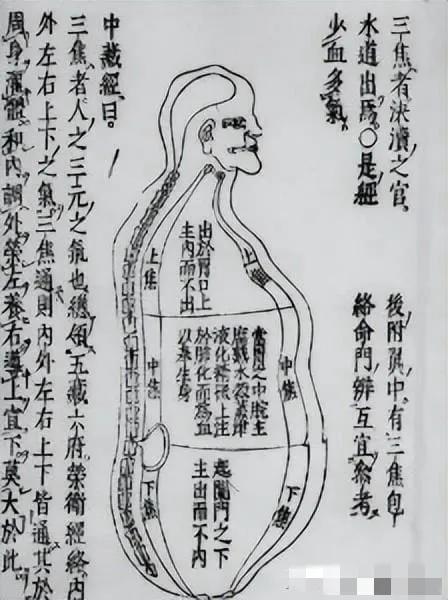 三焦者決瀆之官。
水道出焉。○是經
少血多氣。
後附翼中有三焦包
絡命門辨互宜參考
上
中焦
下焦
出於胃口上
主內而不出
當胃之中脘主
腐熟水穀蒸津
液化精微上注
於肺化而為血
以奉生身
起闌門之下
主出而不內
上焦
中焦
下焦
中藏經曰。
三焦者人之三元之氣也總領五藏六府榮衛經絡內
外左右上下之氣三焦通則內外左右上下皆通其於
周身灌體和內調外榮左養右導上宣下莫大於此